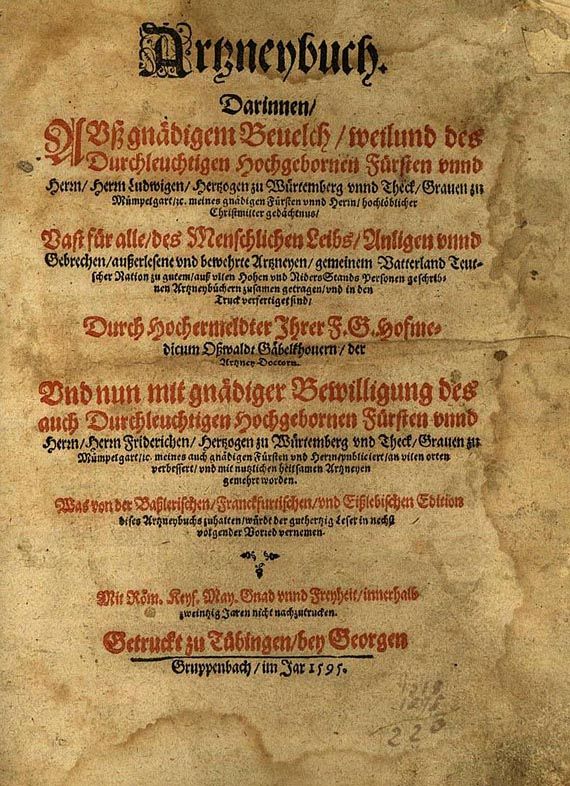 Artzneybuch.
Darinnen/
Auß gnädigem Beuelch / weilund des
Durchleuchtigen Hochgebornen Fürsten vnnd
Herrn/ Herrn Ludwigen/ Hertzogen zu Würtemberg vnnd Theck/ Grauen zu
Mümpelgart/ꝛc. meines gnädigen Fürsten vnnd Herrn/ hochlöblicher
Christmilter gedächtnus/
Vast für alle/ des Menschlichen Leibs/ Anligen vnnd
Gebrechen/ außerlesene vnd bewehrte Artzneyen/ gemeinem Vatterland Teut-
scher Nation zu gutem/ auß vilen Hohen vnd Niders Stands Personen geschrib-
nen Artzneybüchern zusamen getragen/ vnd in den
Truck verfertiget sind/
Durch Hochermeldter Ihrer F. G. Hofme-
dicum Oßwaldt Gäbelkhouern/ der
Artzney Doctorn.
Vnd nun mit gnädiger Bewilligung des
auch Durchleuchtigen Hochgebornen Fürsten vnnd
Herrn/ Herrn Friderichen/ Hertzogen zu Würtemberg vnd Theck/ Grauen zu
Mümpelgart/ꝛc. meines auch gnädigen Fürsten vnd Herrn/ publiciert/ an vilen orten
verbessert/ vnd mit nutzlichen heilsamen Artzneyen
gemehrt worden.
Was von der Baßlerischen/ Franckfurtischen/ vnd Eißlebischen Edition
dises Artzneybuchs zuhalten/ würdt der guthertzig Leser in nechst
volgender Vorred vernemen.
Mit Röm. Keys. May. Gnad vnnd Freyheit/ innerhalb
zweintzig Jaren nicht nachzutrucken.
Getruckt zu Tübingen/ bey Georgen
Gruppenbach/ im Jar 1595.
220